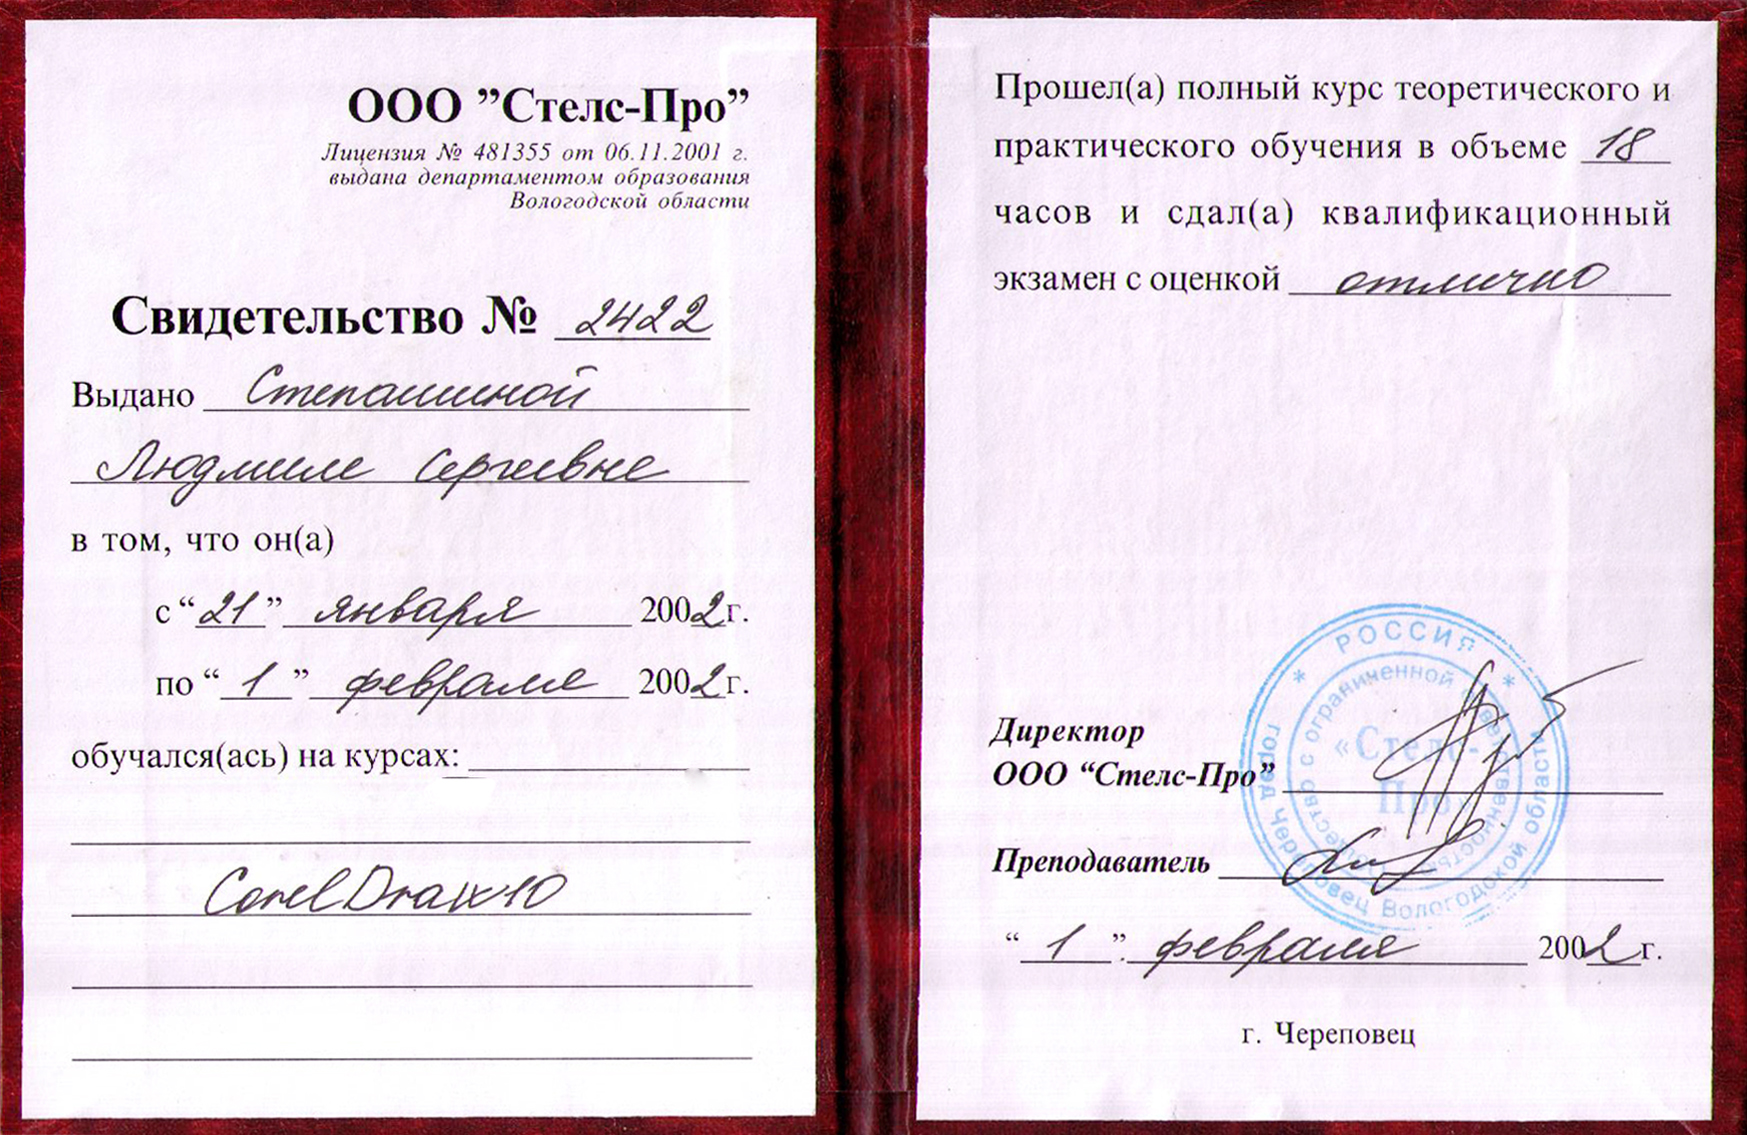 ООО "Стелс-Про"
Лицензия № 481355 от 06.11.2001 г.
выдана департаментом образования
Вологодской области
Свидетельство № 2422
Выдано Степашиной
Людмиле Сергеевне
в том, что он(а)
с “21” января 2002 г.
по “1” февраля 2002 г.
обучался(ась) на курсах:
Corel Draw 10
Прошел(а) полный курс теоретического и
практического обучения в объеме 18
часов и сдал(а) квалификационный
экзамен с оценкой отлично
* РОССИЯ *
город Череповец Вологодской области
общество с ограниченной ответственностью
«Стелс-
Про»
Директор
ООО “Стелс-Про”
Преподаватель
“1” февраля 2002 г.
г. Череповец